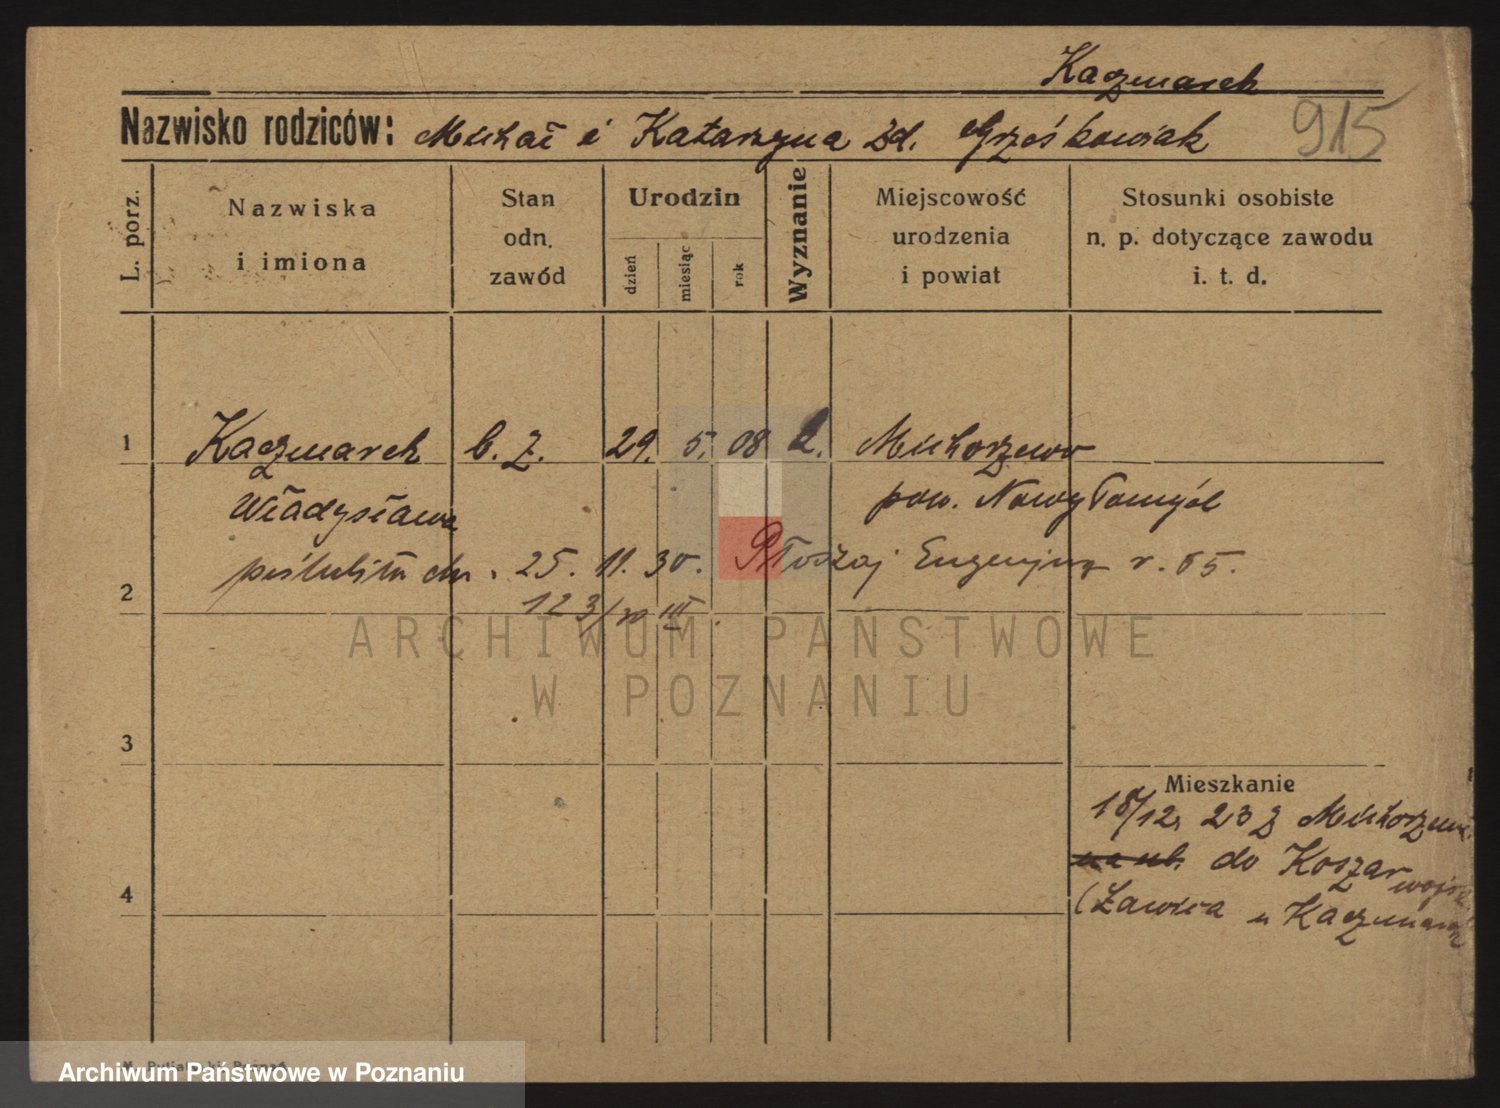 Kaczmarek
Nazwisko rodziców: Michał i Katarzyna zd. Grześkowiak
915
L. porz.
Nazwiska
i imiona
Stan
odn.
zawód
Urodzin
dzień
miesiąc
rok
Wyznanie
Miejscowość
urodzenia
i powiat
Stosunki osobiste
n. p. dotyczące zawodu
i. t. d.
1 Kaczmarek b. z. 29. 5. 08 Michorzewo
Władysława pow. Nowy Tomyśl
poślubiła dn. 25. 11. 30. Płoszaj Eugenjusz r. 05.
2
123/30 III
ARCHIWUM PAŃSTWOWE
W POZNANIU
3
Mieszkanie
18/12. 23 z Michorzewa
do Koszar
4
(Ławica u Kaczmarek
Archiwum Państwowe w Poznaniu